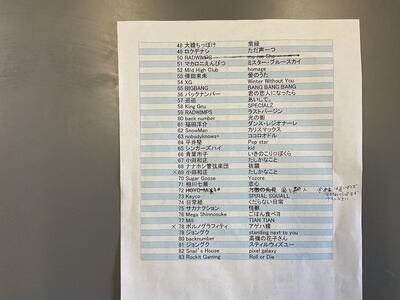 48 大橋ちっぽけ 常緑
49 ロクデナシ ただ声一つ
50 RADWIMPS me me She
51 マカロニえんぴつ ミスター・ブルースカイ
52 Mild High Club homage
53 倖田來未 愛のうた
54 XG Winter Without You
55 BIGBANG BANG BANG BANG
56 バックナンバー 君の恋人になったら
57 遥遥 あいして。
58 King Gnu SPECIALZ
59 RADWIMPS ラストバージン
60 back number 光の街
61 福田洋介 ダンス・レジオナーレ
62 SnowMan カリスマックス
63 nobodyknows+ ココロオドル
64 平井堅 Pop star
65 シンガーズハイ kid
66 青葉市子 いきのこり○ぼくら
67 小田和正 たしかなこと
68 ナナホシ管弦楽団 抜錨
69 小田和正 たしかなこと
70 Sugar Goose Yozora
71 相川七瀬 恋心
72
73 Keyco SPIRAL SQUALL
74 日常組 くだらない日常
75 サカナクション 怪獣
76 Mega Shinnosuke ごはん食べヨ
77 Mili TIAN TIAN
78 ポルノグラフィティ アゲハ蝶
79 ジョングク standing next to you
80 backnumber 高嶺の花子さん
81 ジョングク スティルウィズユー
82 Snail's House pixel galaxy
83 Rockit Gaming Roll or Die